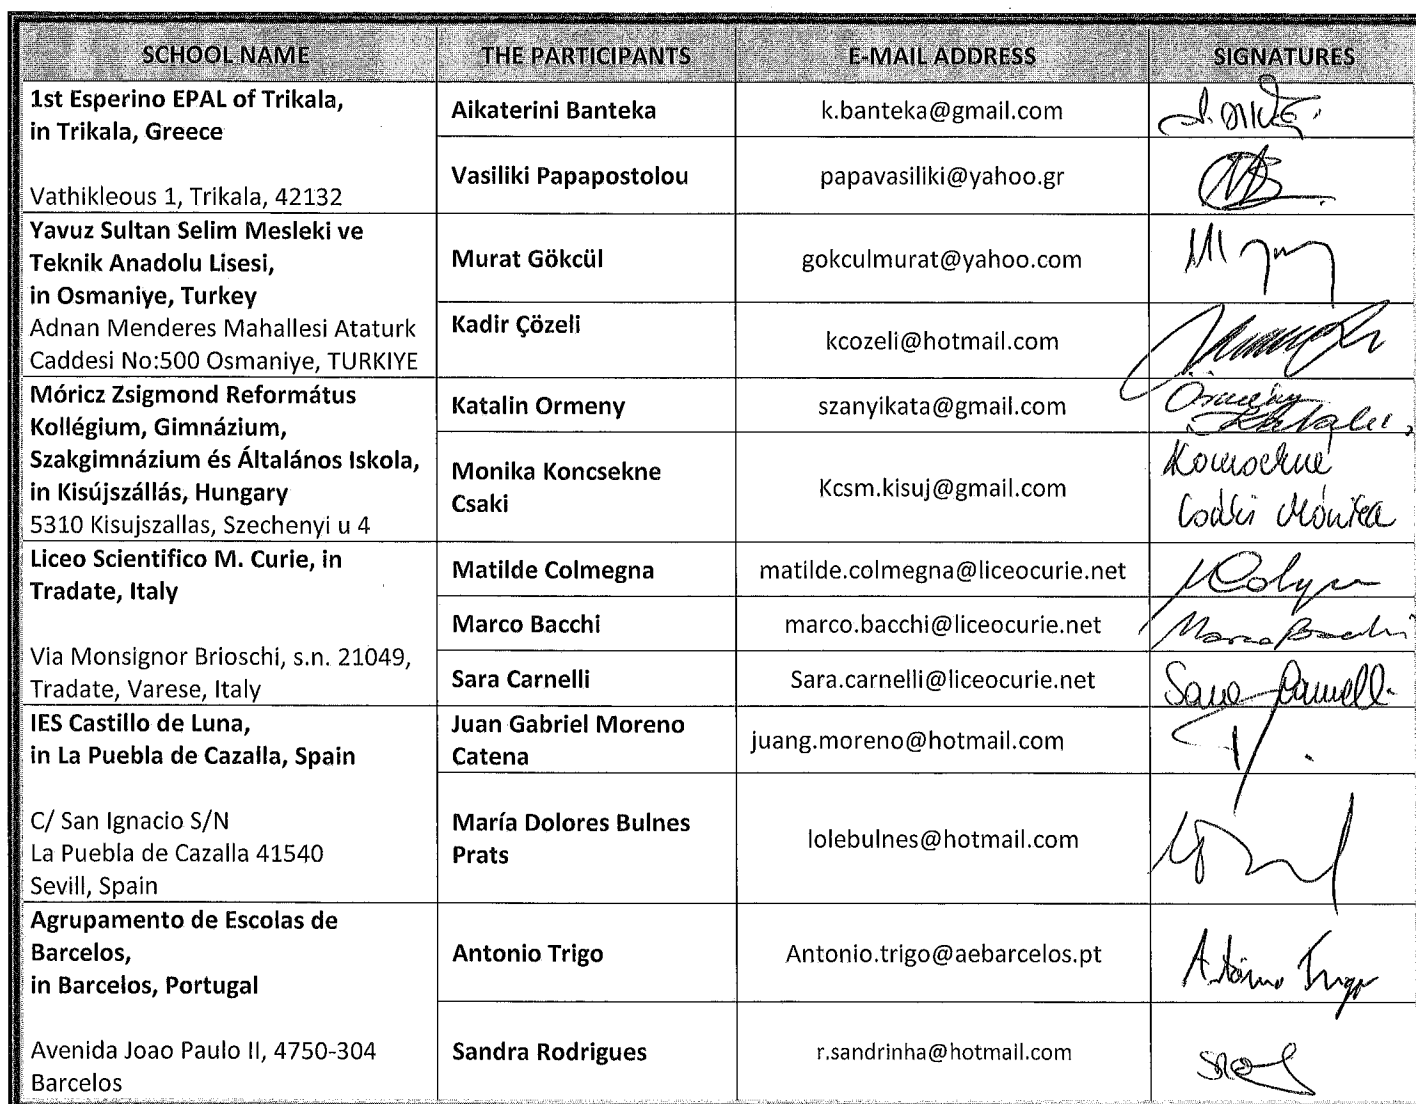 SCHOOL NAME
THE PARTICIPANTS
E-MAIL ADDRESS
SIGNATURES
1st Esperino EPAL of Trikala,
in Trikala, Greece
Vathikleous 1, Trikala, 42132
Aikaterini Banteka
k.banteka@gmail.com
Vasiliki Papapostolou
papavasiliki@yahoo.gr
Yavuz Sultan Selim Mesleki ve
Teknik Anadolu Lisesi,
in Osmaniye, Turkey
Adnan Menderes Mahallesi Ataturk
Caddesi No:500 Osmaniye, TURKIYE
Murat Gökcül
gokculmurat@yahoo.com
Kadir Çözeli
kcozeli@hotmail.com
Móricz Zsigmond Református
Kollégium, Gimnázium,
Szakgimnázium és Általános Iskola,
in Kisújszállás, Hungary
5310 Kisujszallas, Szechenyi u 4
Katalin Ormeny
szanyikata@gmail.com
Örmény
Katalin
Monika Koncsekne
Csaki
Kcsm.kisuj@gmail.com
Liceo Scientifico M. Curie, in
Tradate, Italy
Via Monsignor Brioschi, s.n. 21049,
Tradate, Varese, Italy
Matilde Colmegna
matilde.colmegna@liceocurie.net
Marco Bacchi
marco.bacchi@liceocurie.net
Marco Bacchi
Sara Carnelli
Sara.carnelli@liceocurie.net
Sara Carnelli
IES Castillo de Luna,
in La Puebla de Cazalla, Spain
C/ San Ignacio S/N
La Puebla de Cazalla 41540
Sevill, Spain
Juan Gabriel Moreno
Catena
juang.moreno@hotmail.com
María Dolores Bulnes
Prats
lolebulnes@hotmail.com
Agrupamento de Escolas de
Barcelos,
in Barcelos, Portugal
Avenida Joao Paulo II, 4750-304
Barcelos
Antonio Trigo
Antonio.trigo@aebarcelos.pt
António Trigo
Sandra Rodrigues
r.sandrinha@hotmail.com